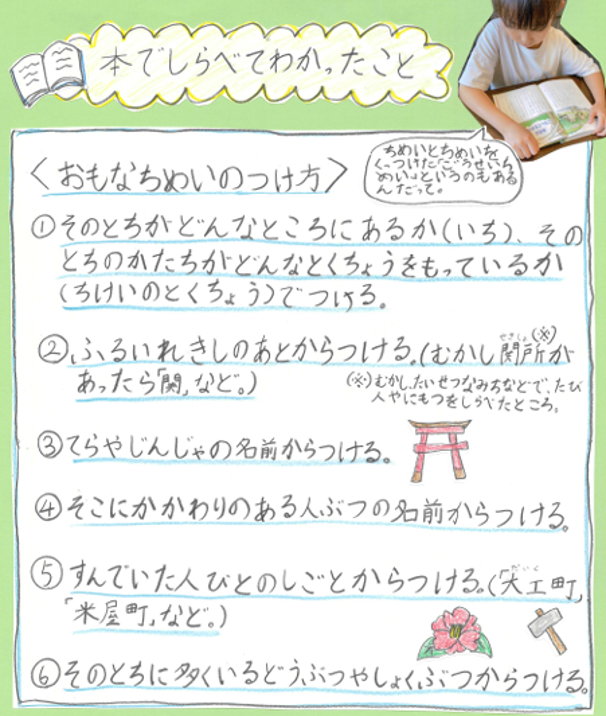 本でしらべてわかったこと
〈おもなちめいのつけ方〉
ちめいとちめいを
くっつけた「ごうせいち
めい」というのもある
んだって。
①そのとちがどんなところにあるか(いち)、その
とちのかたちがどんなとくちょうをもっているか
(ちけいのとくちょう)でつける。
②ふるいれきしのあとからつける。(むかし関所(※)が
せきしょ
あったら「関」など。)
(※)むかし、たいせつなみちなどで、たび
人やにもつをしらべたところ。
③てらやじんじゃの名前からつける。
④そこにかかわりのある人ぶつの名前からつける。
⑤すんでいた人びとのしごとからつける。(「大工町」
だいく
「米屋町」など。)
⑥そのとちに多くいるどうぶつやしょくぶつからつける。